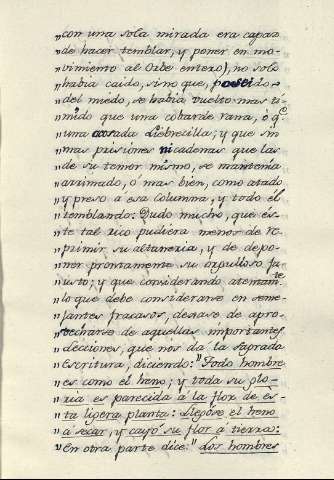 "con una sola mirada era capaz
"de hacer temblar, y poner en mo-
"vimiento al Orbe entero), no solo
"habia caido, sino que, poseido
"del miedo, se habia vuelto mas tí-
"mido que una cobarde rana, ó q.e
"una acosada Liebrecilla; y que sin
"mas prisiones ni cadenas que las
"de su temor mismo, se mantenia
"arrimado, ó mas bien, como atado
"y preso a esa columna, y todo él
"temblando: Dudo mucho, que és-
"te tal rico pudiera menos de re-
"primir su altaneria, y de depo-
"ner prontamente su orgulloso fa-
"usto; y que considerando atentam.te
"lo que debe considerarse en seme-
"jantes fracasos, dexase de apro-
"vecharse de aquellas importantes
"Lecciones, que nos da la Sagrada
"Escritura, diciendo: "Todo hombre
"es como el heno; y toda su glo-
"ria es parecida á la flor de és-
"ta ligera planta: Llegóse el heno
"á secar, y cayó su flor á tierra:
"En otra parte dice: "Los hombres